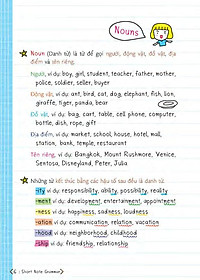 Nouns
Noun (Danh từ) là từ để gọi người, động vật, đồ vật, địa
điểm và tên riêng.
Người, ví dụ: boy, girl, student, teacher, father, mother,
police, soldier, seller, buyer
Động vật, ví dụ: ant, bird, cat, dog, elephant, fish, lion,
giraffe, tiger, panda, bear
Đồ vật, ví dụ: bag, cart, table, cell phone, computer,
bottle, dish, rope, gift
Địa điểm, ví dụ: market, school, house, hotel, mall,
station, bank, temple, restaurant
Tên riêng, ví dụ: Bangkok, Mount Rushmore, Venice,
Sentosa, Disneyland, Peter, Julia
Những từ kết thúc bằng các hậu tố sau đều là danh từ.
-ity ví dụ: responsibility, ability, possibility, reality
-ment ví dụ: development, entertainment, appointment
-ness ví dụ: happiness, sadness, loudness
-ation ví dụ: communication, relation, vacation
-hood ví dụ: neighborhood, childhood
-ship ví dụ: friendship, relationship
6 | Short Note Grammar